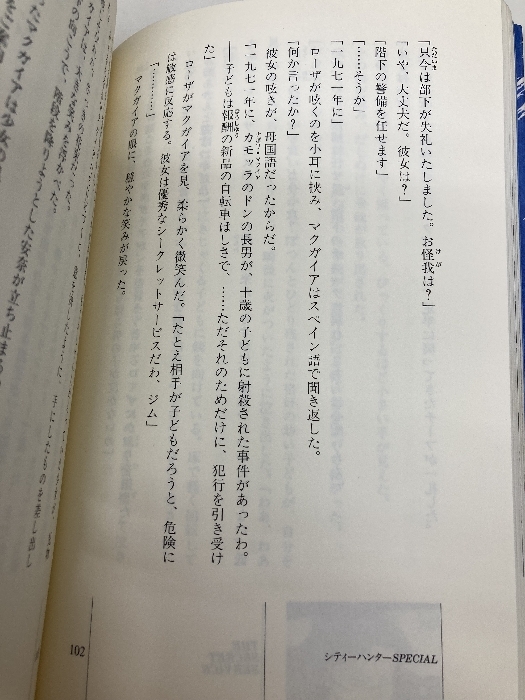 「只今は部下が失礼いたしました。お怪我は？」
「いや、大丈夫だ。彼女は？」
「階下の警備を任せます」
「……そうか」
「一九七一年に」
ローザが呟くのを小耳に挟み、マクガイアはスペイン語で聞き返した。
「何か言ったか？」
彼女の呟きが、母国語だったからだ。
「一九七一年に、カモッラのドンの長男が、十歳の子どもに射殺された事件があったわ。
――子どもは報酬の新品の自転車ほしさで、……ただそれのためだけに、犯行を引き受け
た」
ローザがマクガイアを見、柔らかく微笑んだ。「たとえ相手が子どもだろうと、危険に
は敏感に反応する。彼女は優秀なシークレットサービスだわ、ジム」
「…………」
マクガイアの眼に、穏やかな笑みが戻った。
シティーハンターSPECIAL
102